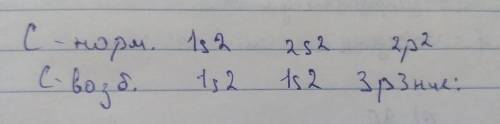 С - норм. 1s2 2s2 2p²
С - возб. 1s2 1s2 3p3